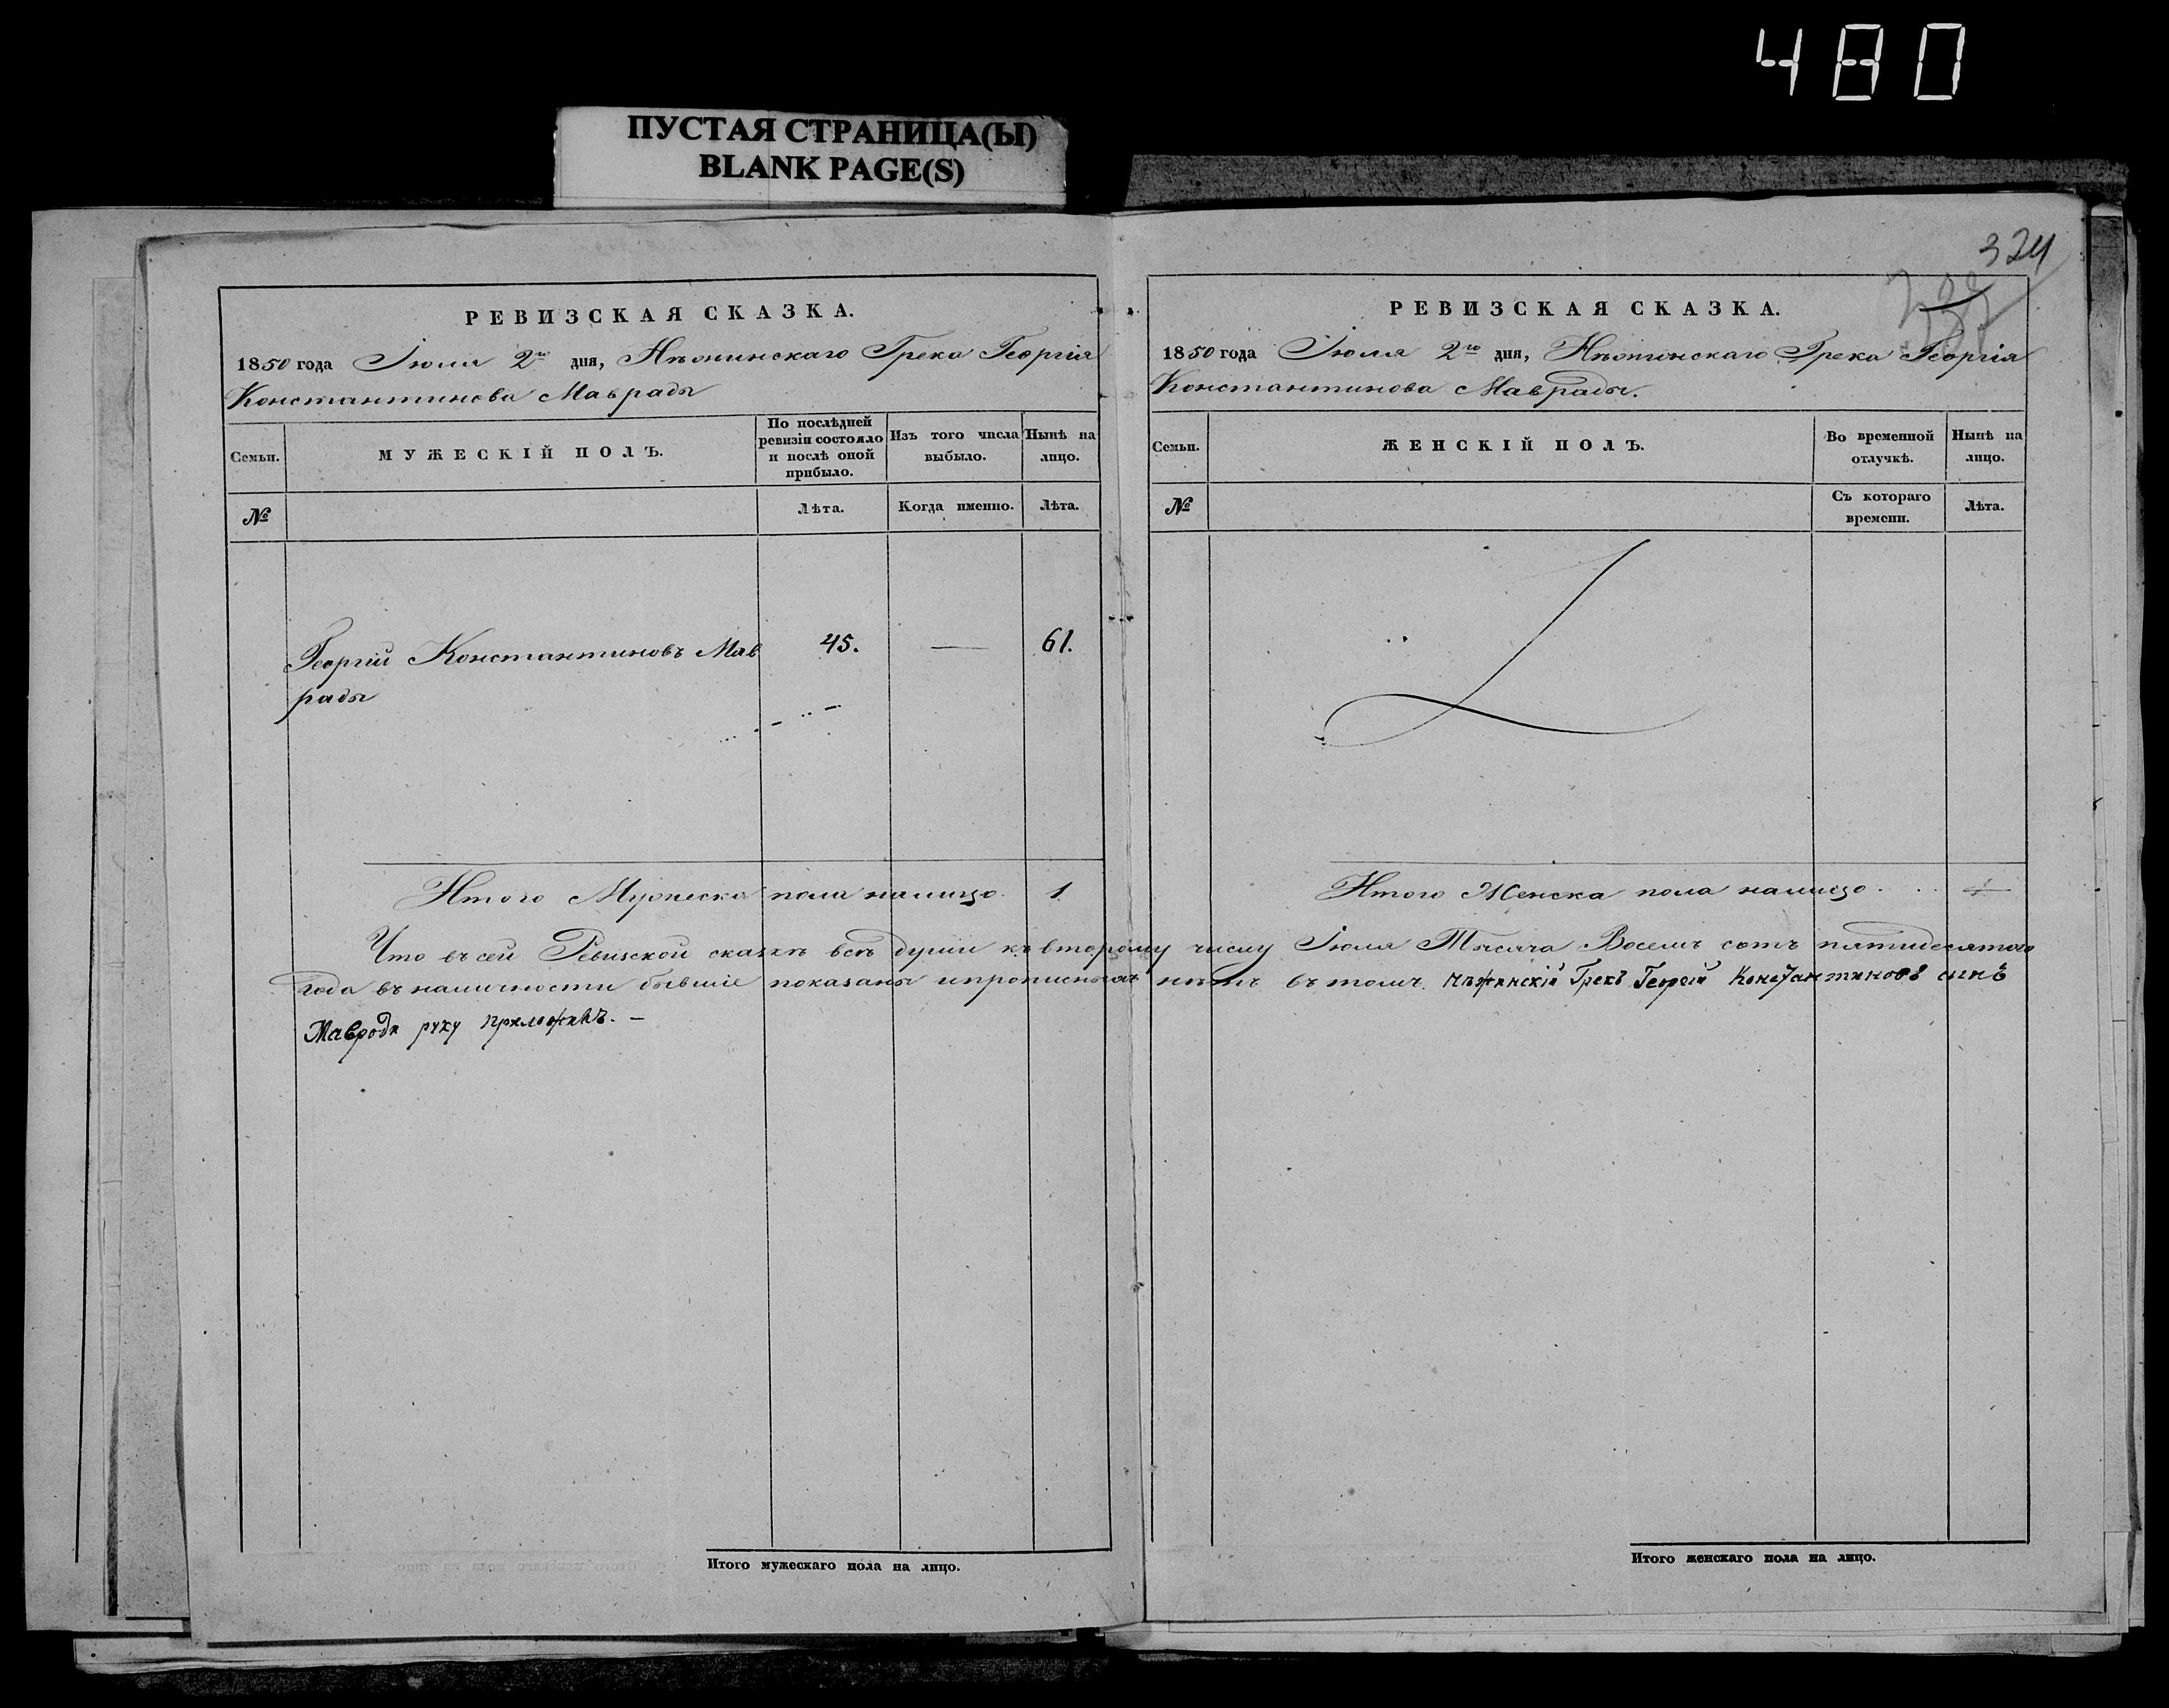 480
ПУСТАЯ СТРАНИЦА(Ы)
BLANK PAGE(S)
РЕВИЗСКАЯ СКАЗКА.
1850 года Іюля 2го дня, Нѣжинскаго Грека Георгія
Константинова Маврады
Семьи.
МУЖЕСКІЙ ПОЛЪ.
По послѣдней ревизіи состояло и послѣ оной прибыло.
Изъ того числа выбыло.
Нынѣ на лицо.
№
Лѣта.
Когда именно.
Лѣта.
Георгій Константиновъ Мав 45. — 61.
рады
Итого Мужеска пола налицо. 1
324
РЕВИЗСКАЯ СКАЗКА.
1850 года Іюля 2го дня, Нѣжинскаго Грека Георгія
Константинова Маврады.
Семьи.
ЖЕНСКІЙ ПОЛЪ.
Во временной отлучкѣ.
Нынѣ на лицо.
№
Съ котораго времени.
Лѣта.
Итого Женска пола налицо
Что въ сей Ревизской сказкѣ всѣ души къ второму числу Іюля Тысяча Восемь сотъ пятидесятого
года въ наличности бывшіе показаны и прописныхъ нѣтъ въ томъ Нѣжинскій Грекъ Георгій Константиновъ сынъ
Мавроди руку приложилъ. —
Итого мужескаго пола на лицо.
Итого женскаго пола на лицо.